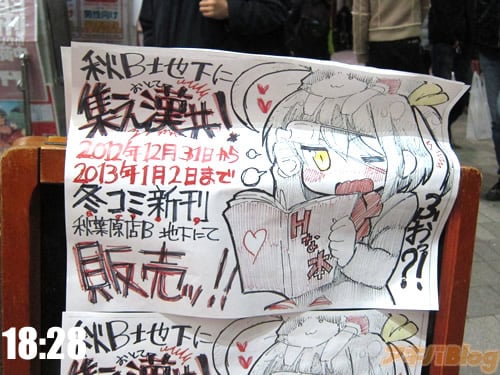 秋B地下に
おとこ
集え漢共!
2012年12月31日から
2013年1月2日まで
冬コミ新刊
秋葉原店B地下にて
販売ッ!!
Hな本
ふおっ?!
秋B地下に
18:28
アキバBlog